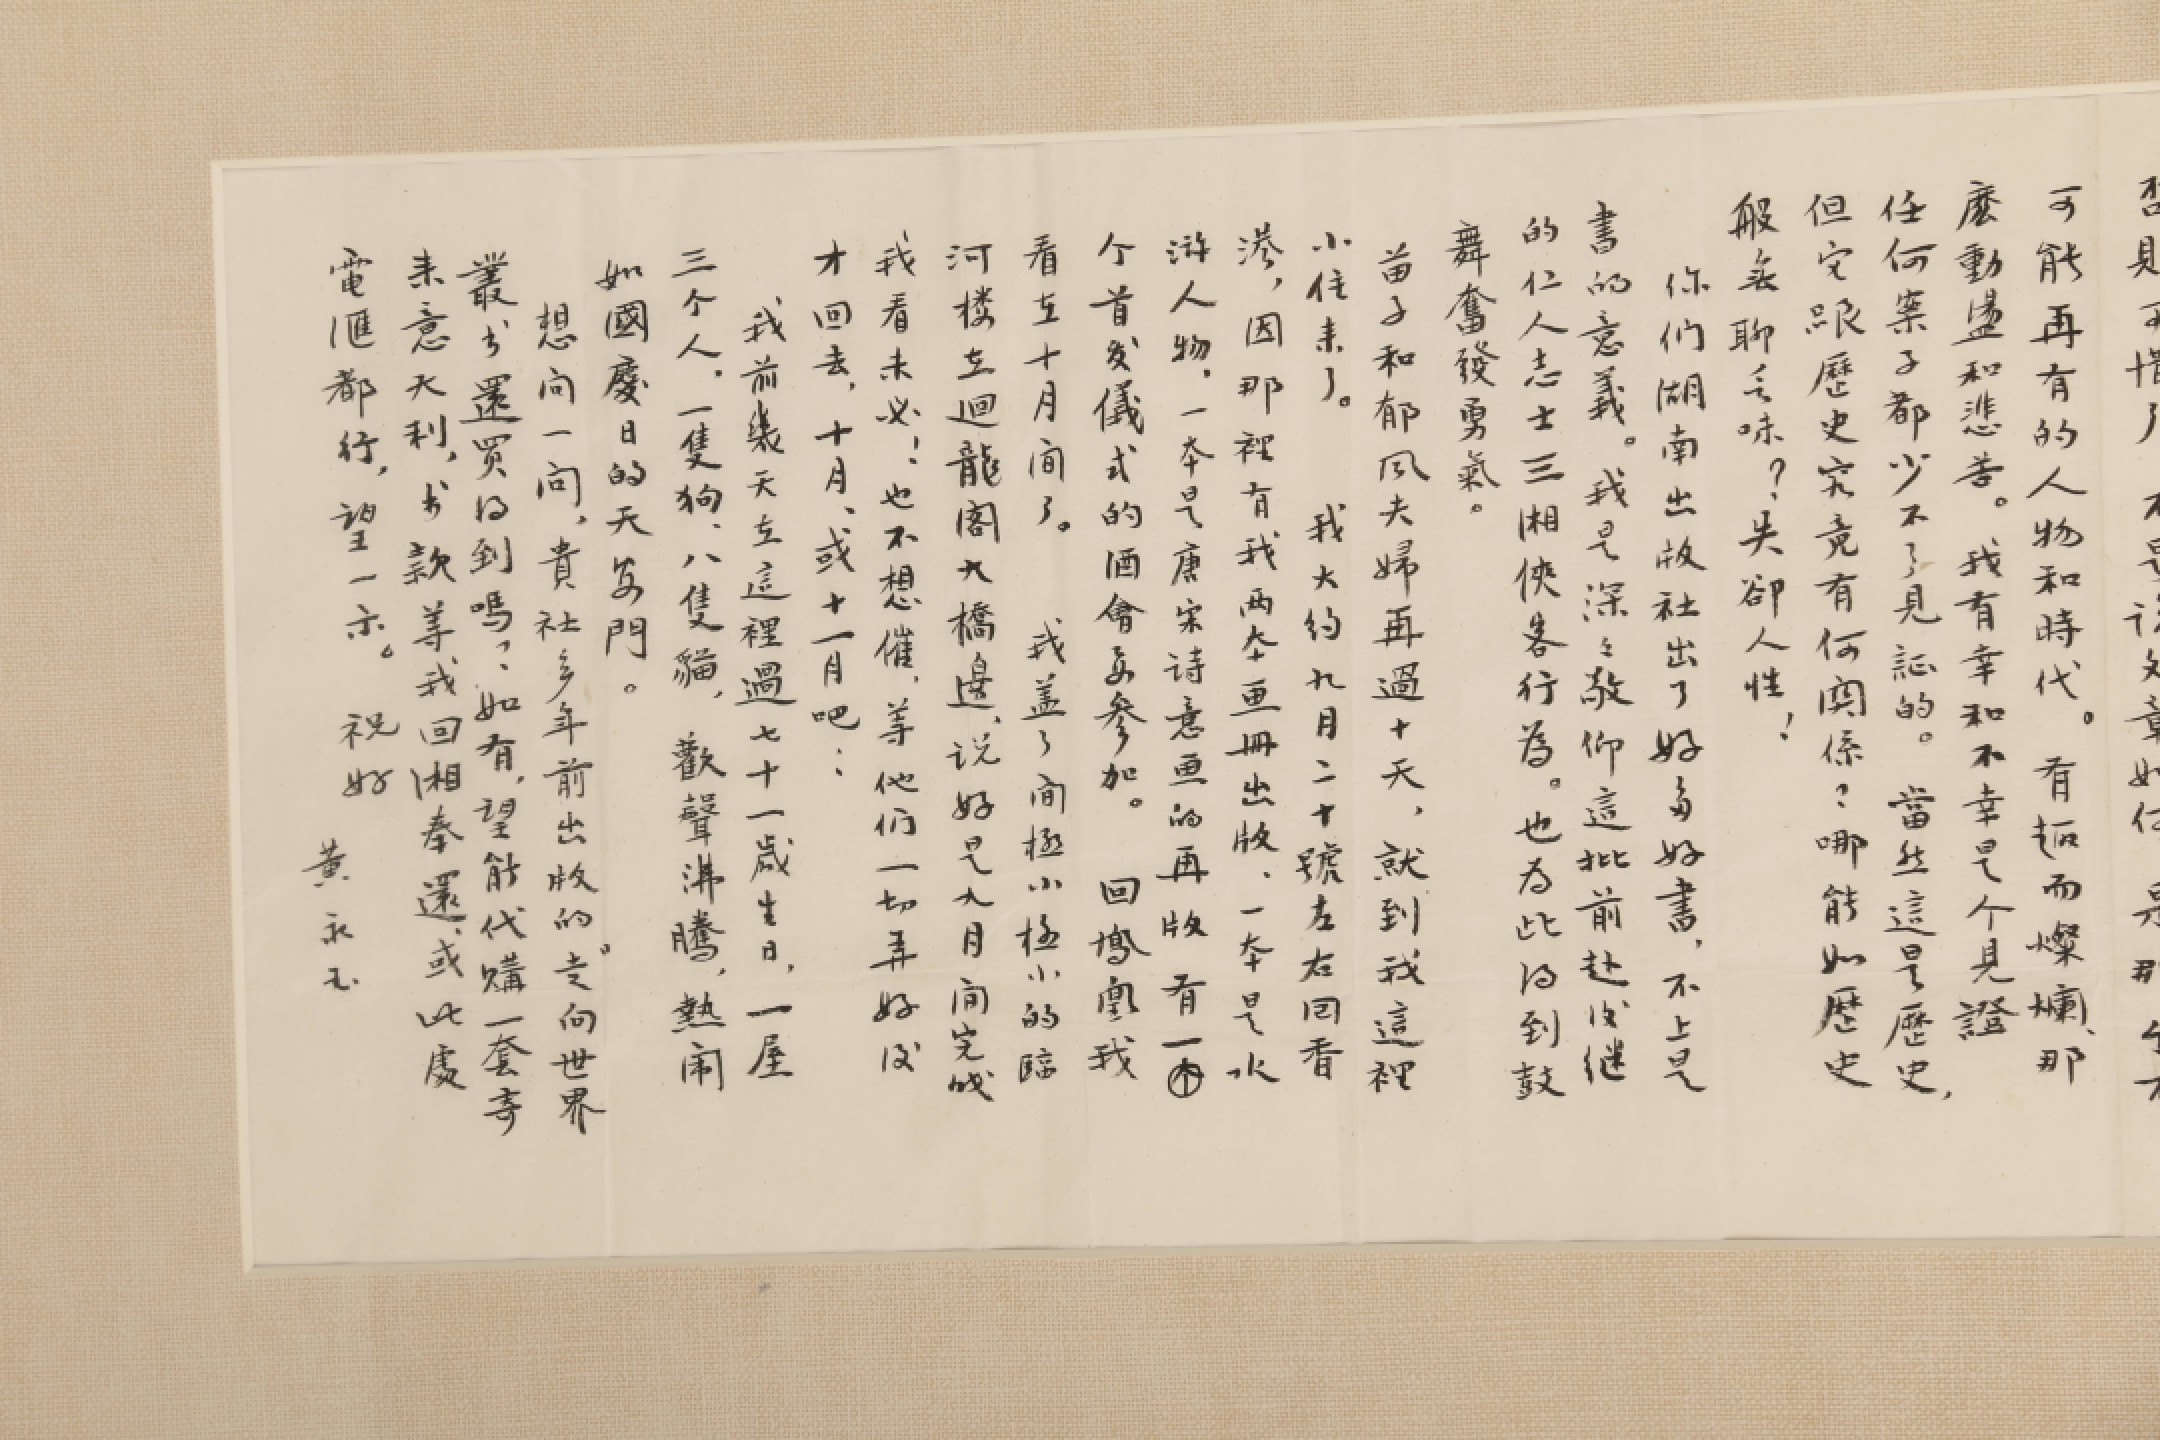 可能再有的人物和時代。有趣而燦爛、那
麼動盪和悲苦。我有幸和不幸是个見證
任何案子都少不了見証的。當然這是歷史,
但它跟歷史究竟有何関係？哪能如歷史
般無聊乏味？失卻人性！
你们湖南出版社出了好多好書,不止是
書的意義。我是深深敬仰這批前赴后继
的仁人志士三湘俠客行為。也为此得到鼓
舞奮發勇氣。
苗子和郁风夫婦再過十天,就到我這裡
小住来了。我大约九月二十號左右回香
港,因那裡有我两本画冊出版、一本是水
滸人物,一本是唐宋詩意画的再版有一个
个首发儀式的酒會要參加。回鳳凰我
看在十月间了。我盖了间極小極小的臨
河楼在迴龍閣大橋邊、说好是九月间完成
我看未必！也不想催、等他们一切弄好后
才回去,十月、或十一月吧：
我前幾天在這裡過七十一歲生日,一屋
三个人,一隻狗、八隻貓,歡聲沸騰,熱闹
如國慶日的天安門。
想问一问,貴社多年前出版的走向世界
叢书還買得到嗎？如有,望能代購一套寄
来意大利,书款等我回湘奉還、或此處
電滙都行,望一示。祝好
黄永玉